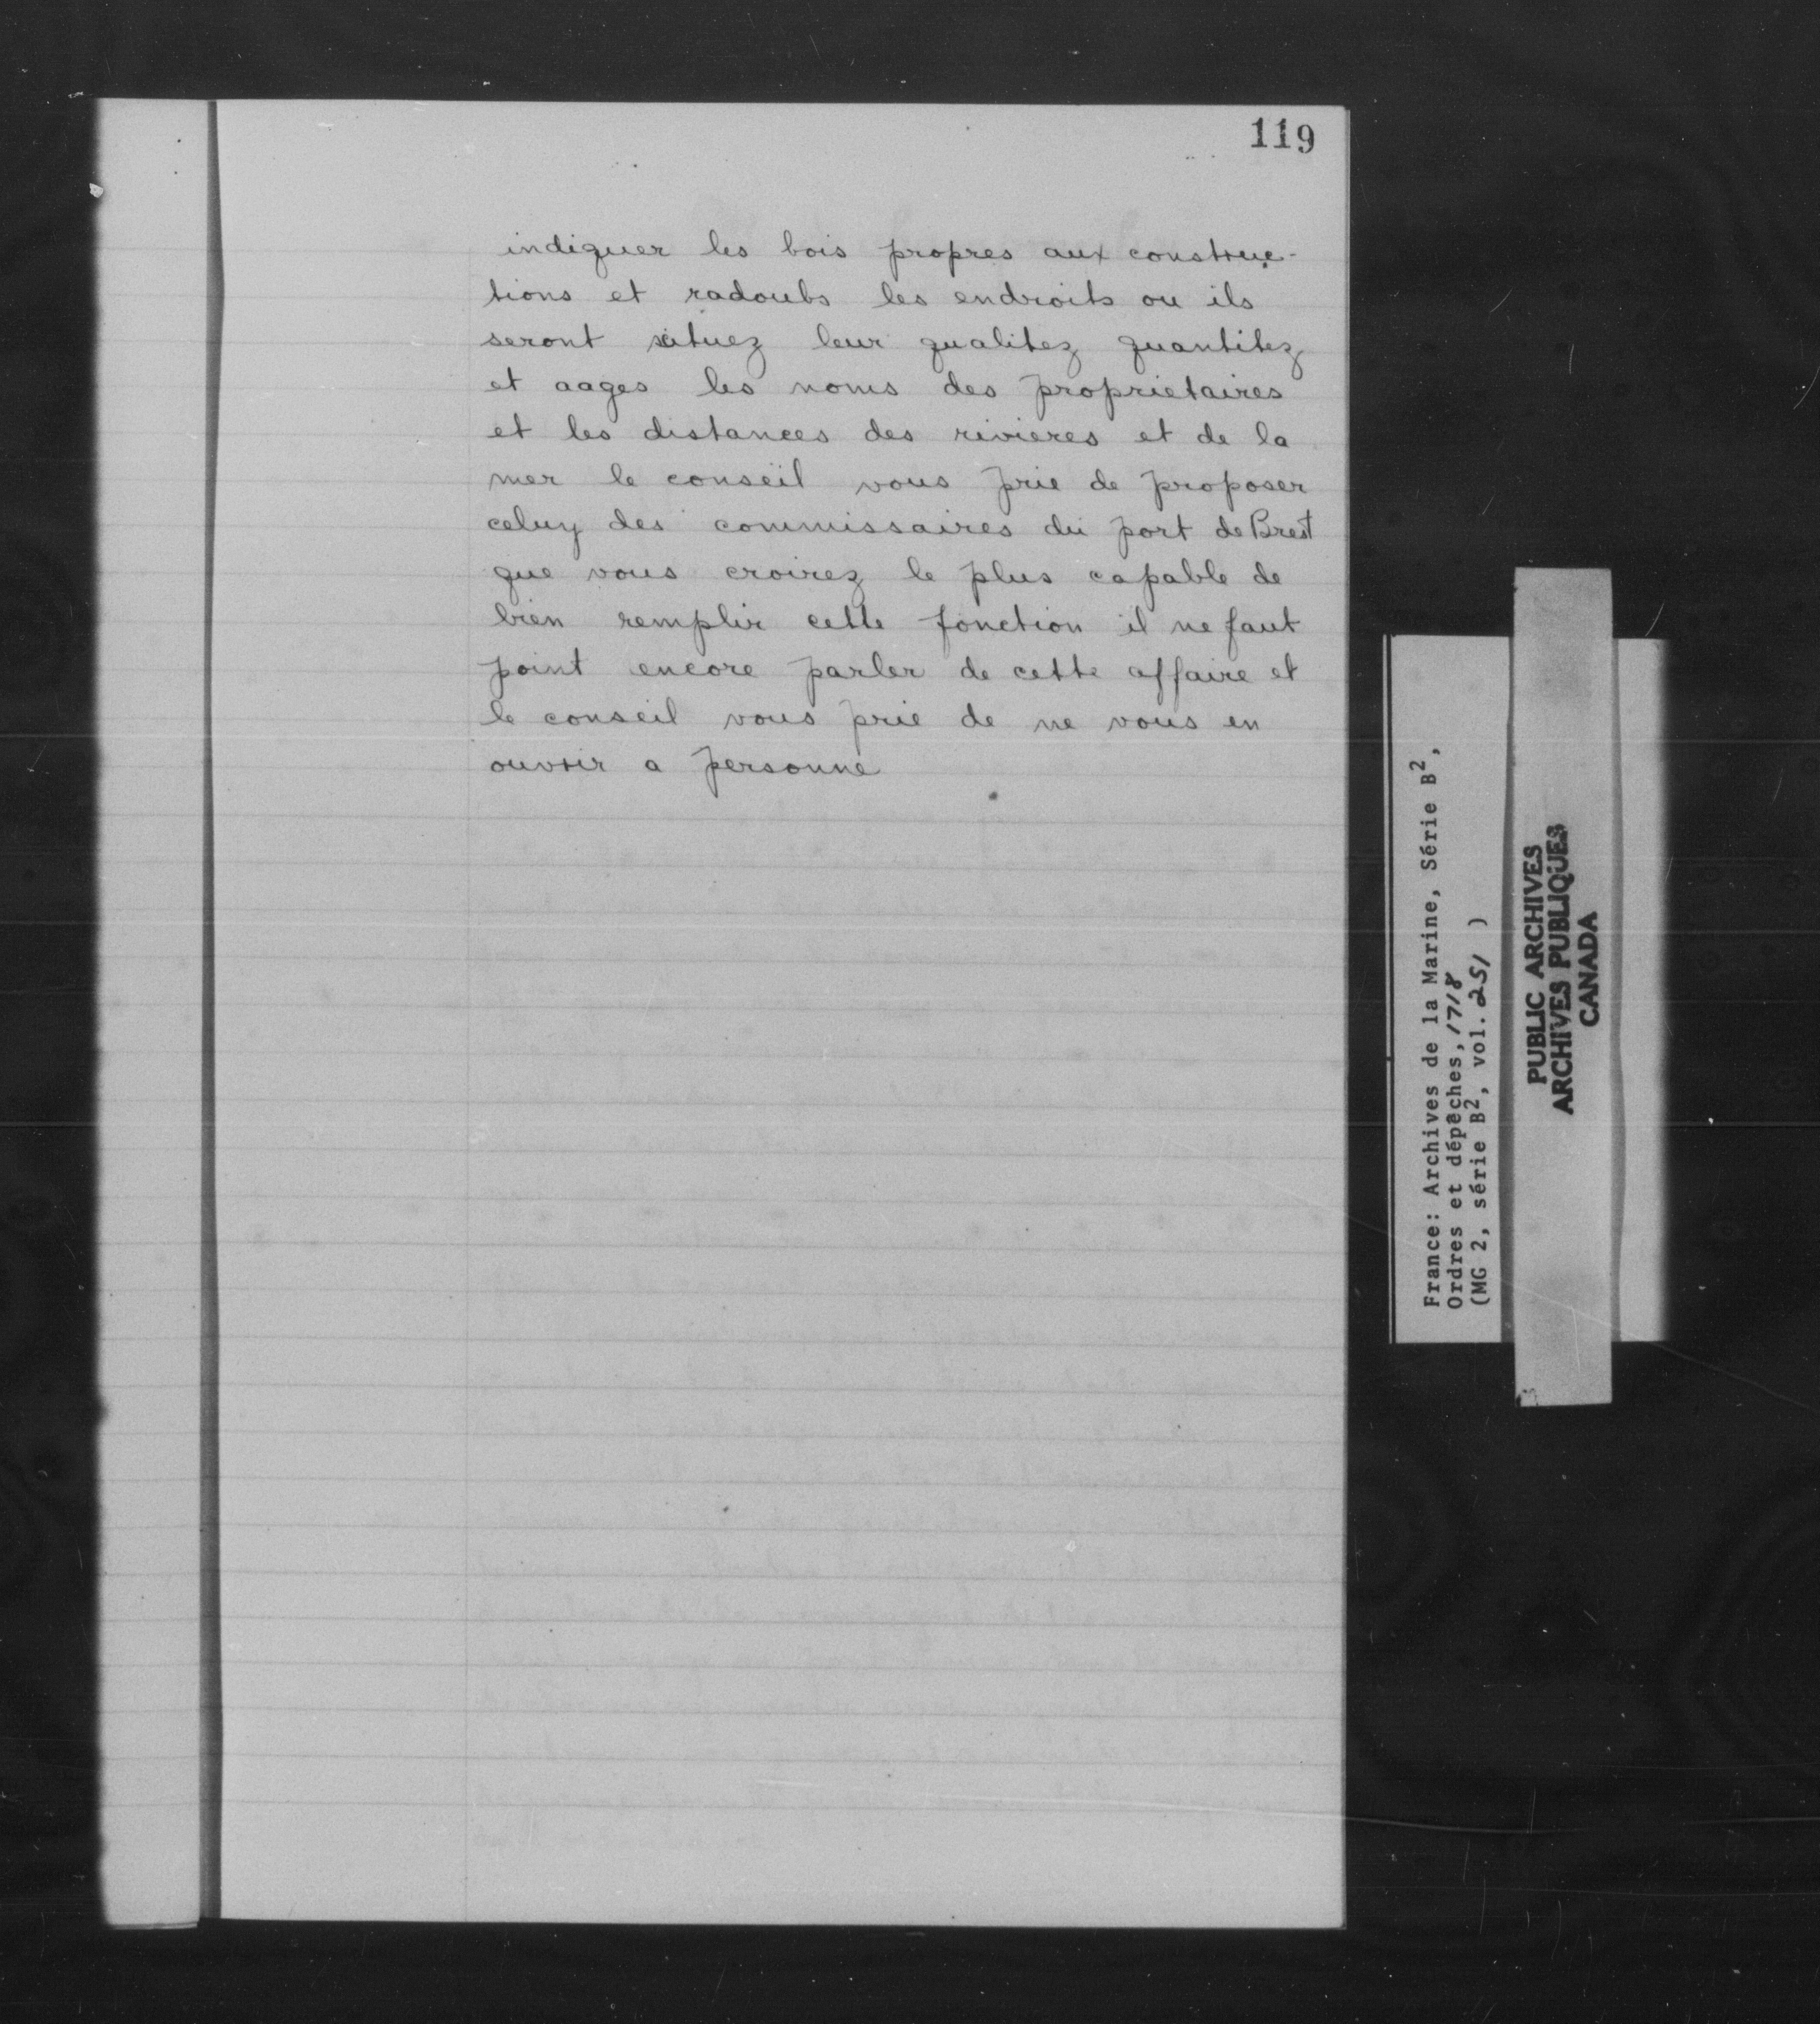 119
indiquer les bois propres aux construc-
tions et radoubs les endroits ou ils
seront situez leur qualitez quantitez
et aages les noms des proprietaires
et les distances des rivieres et de la
mer le conseil vous prie de proposer
celuy des commissaires du port de Brest
que vous croirez le plus capable de
bien remplir cette fonction il ne faut
point encore parler de cette affaire et
le conseil vous prie de ne vous en
ouvrir a personne
France: Archives de la Marine, Série B²,
Ordres et dépêches, 1718
(MG 2, série B², vol. 251 )
PUBLIC ARCHIVES
ARCHIVES PUBLIQUES
CANADA